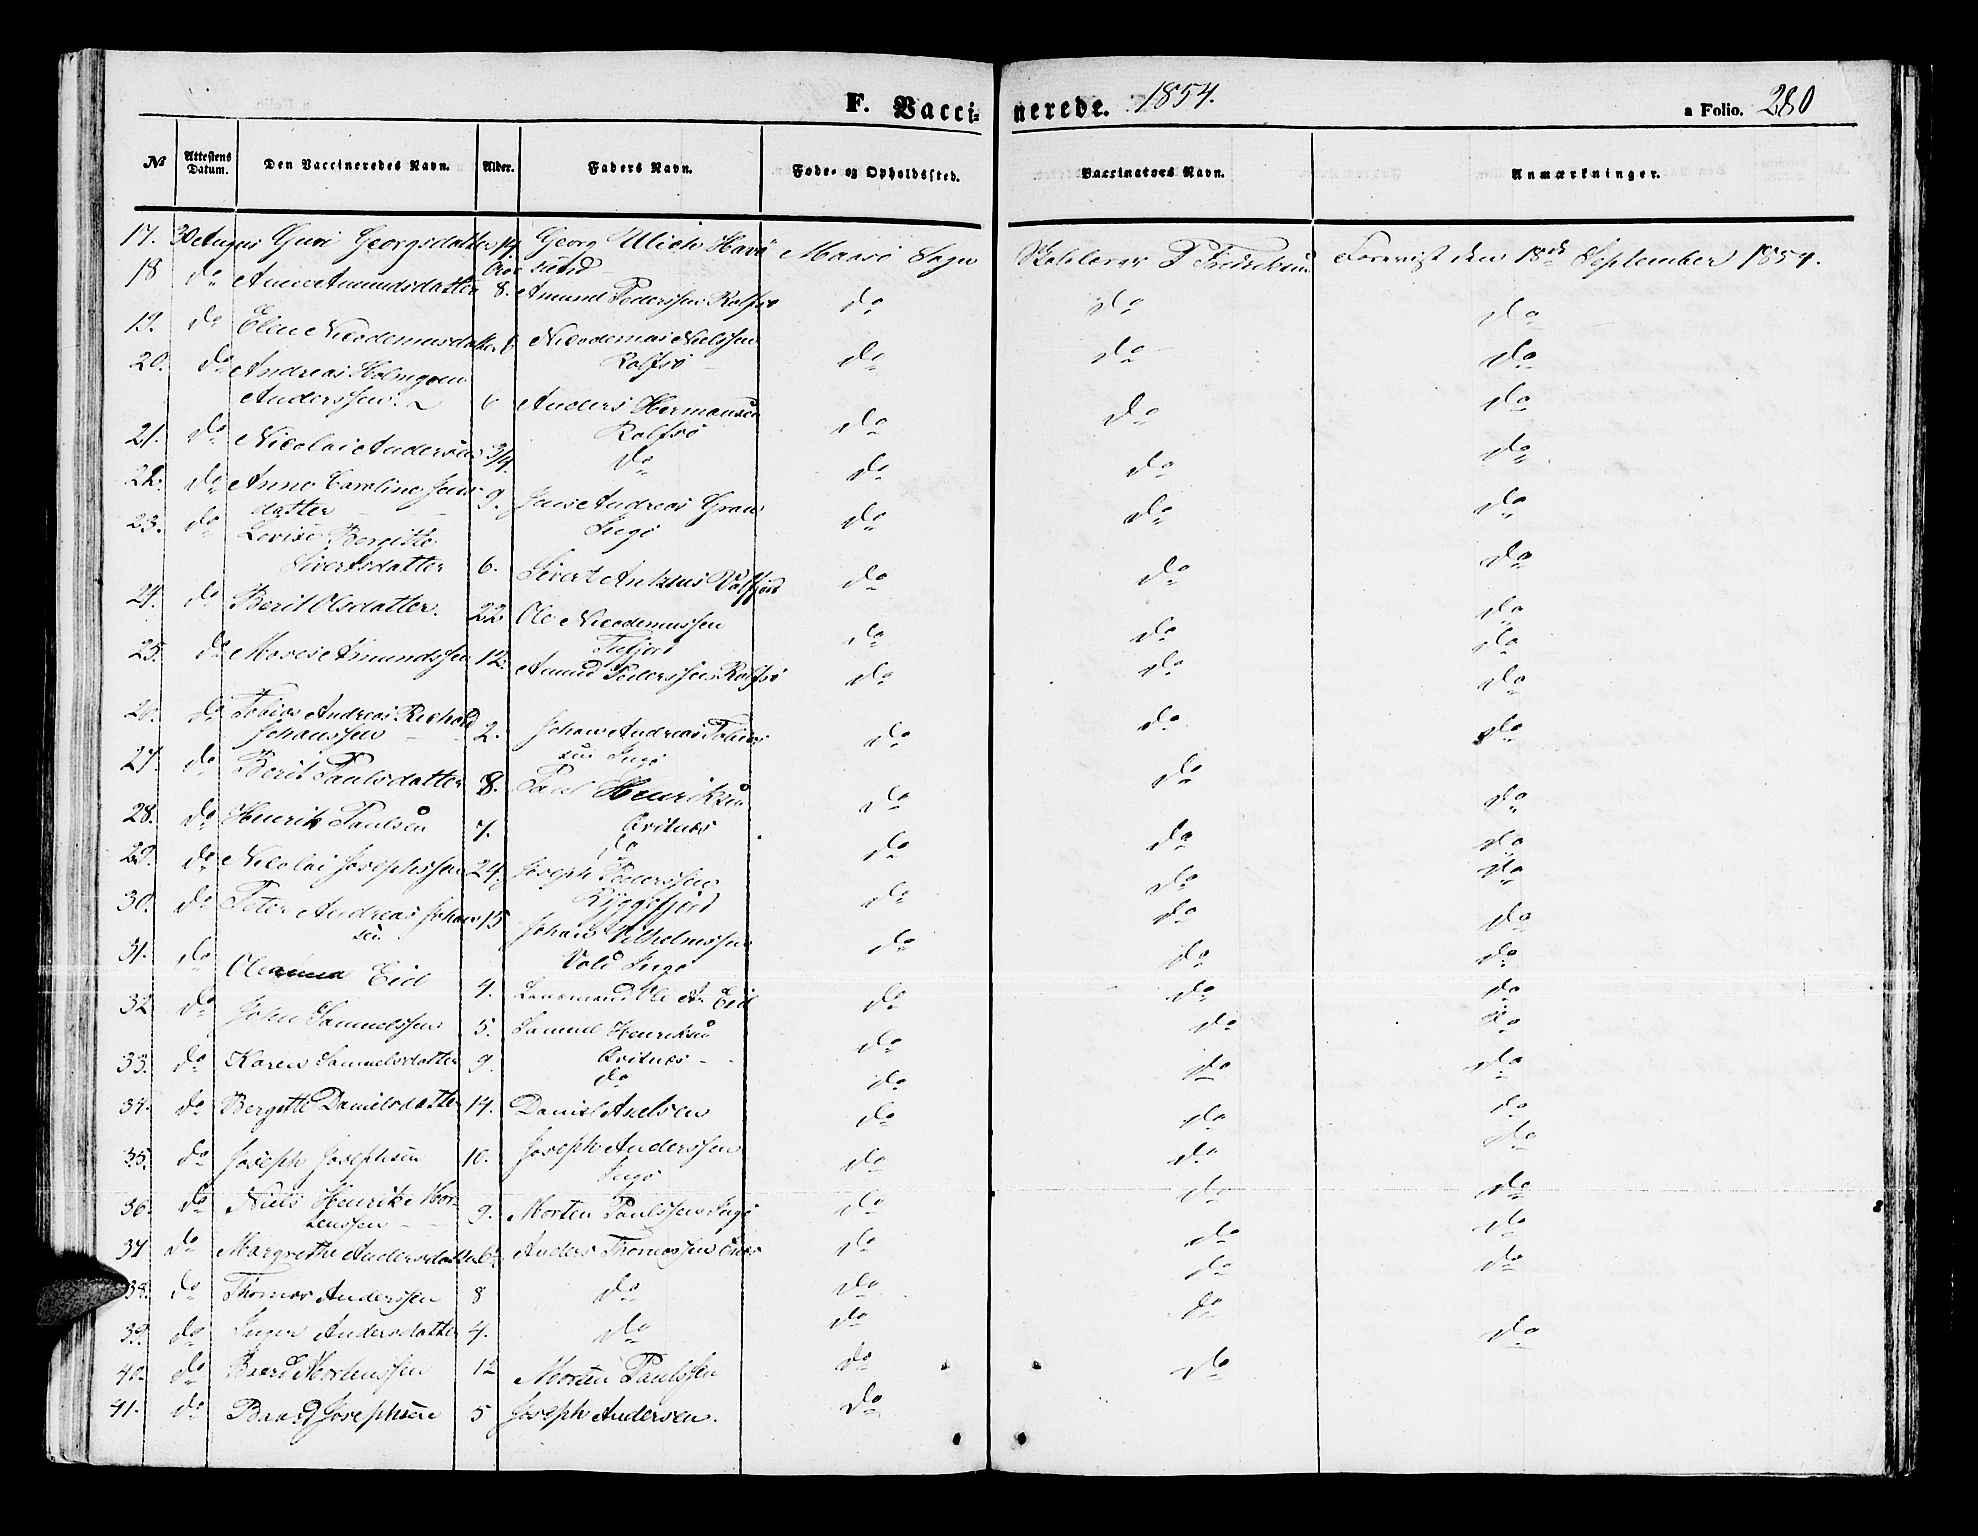 F. Vaccinerede. 1854.
a Folio. 280
No Attestens Datum. Den Vaccineredes Navn. Alder. Faders Navn. Føde- og Opholdssted. Vaccinators Navn. Anmærkninger.
17. 30 August Guri Georgsdatter 14 Georg Ulich Havø Maasø Sogn P Fredriksen Forevist den 18de September 1854.
Aar sund
18 do Anne Amundsdatter 8. Amund Pedersen Rolfsø do do do
19. do Eline Nicodemusdatter Nicodemus Nielssen do do do
Rolfsø
20. do Andreas Holmgren
Anderssen 6 Anders Hermansen do do do
Rolfsø
21. do Nicolai Andersen 3/4. do do do do
22. do Anne Caroline Jens 9. Jens Andreas Gran do do do
datter Ingø
23. do Lovise Bergitte
Sivertsdatter 6. Sivert do do do
24. do Berit Olsdatter. 22 Ole Nicodemussen do do do
Tufjord
25. do Amundssen 12. Amund Pederssen Rolfsø do do do
26. do Tobias Andreas Richard
Johanssen 2. Johan Andreas Tobias do do do
sen Ingø
27. do Berit Paulsdatter 8. Paul Henriksen do do do
28. do Henrik Paulsen 7. do do do
do
29. do Nicolai Josephssen 24. Joseph Pederssen do do do
Ryggefjord
30. do Peter Andreas Johan 15 Johan Vilhelmssen do do do
sen Vold Ingø
31. do Eid 4. Lensmand Ole An Eid do do do
32 do John Samuelssen 5. Samuel Henriksen do do do
33. do Karen Samuelsdatter 9. do do do do
34. do Bergitte Danielsdatter 14. Daniel Axelsen do do do
35. do Joseph Josephsen 10. Joseph Anderssen do do do
Ingø
36. do Niels Henrik Mor-
tenssen 9. Morten Paulssen Ingø do do do
37 do Margrethe Andersdatter Anders Thomassen do do do
38. do Thomas Anderssen 8 do do do do
39. do Inger Andersdatter 4. do do do do
40. do Baerd Mortenssen 12 Morten Paulssen do do
41. do Baard Josephsen 5 Joseph Andersen. do